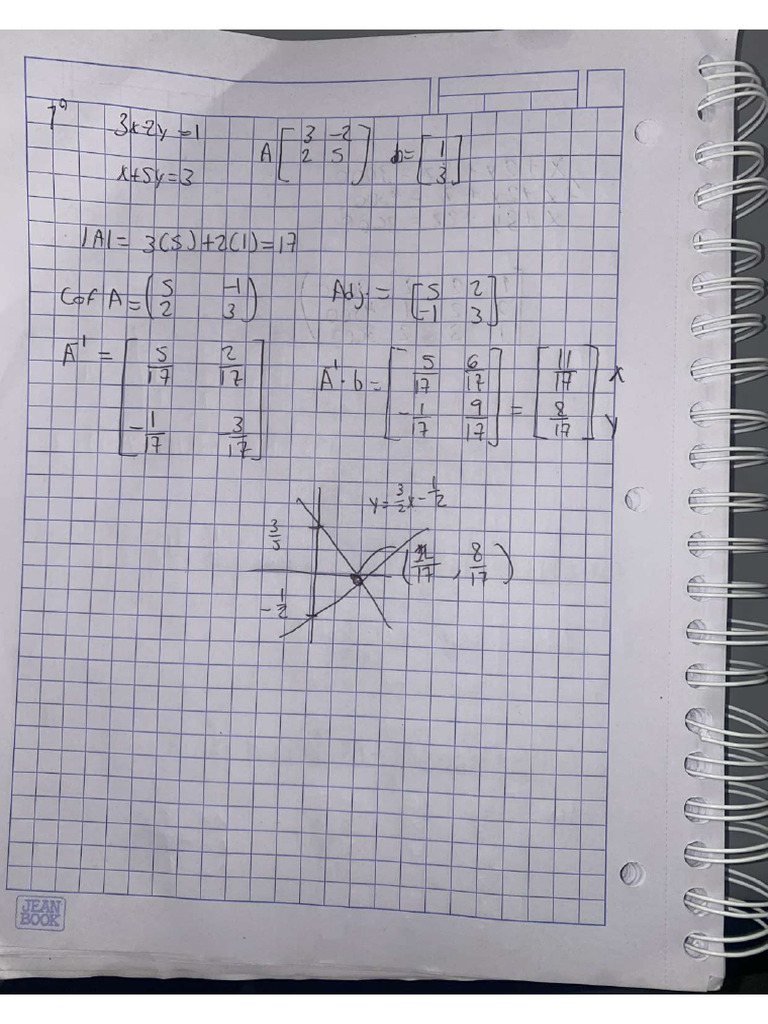 1°
3x-2y=1
x+5y=3
A [3 -2
2 5] b=[1
3]
|A|= 3(5)+2(1)=17
Cof A=(5 -1
2 3)
Adj.= [5 2
-1 3]
A⁻¹ = [5/17 2/17
-1/17 3/17]
A⁻¹·b = [5/17 6/17
-1/17 9/17] = [11/17
8/17] x
y
y=3/2x-1/2
3/5
-1/2
( /17, 8/17)
JEAN
BOOK